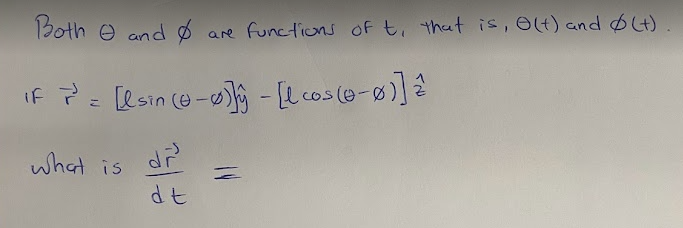 Both θ and ϕ are functions of t, that is, θ(t) and ϕ(t).
IF r⃗ = [ℓ sin (θ-ϕ)]ŷ - [ℓ cos (θ-ϕ)] ẑ
What is dr⃗/dt =